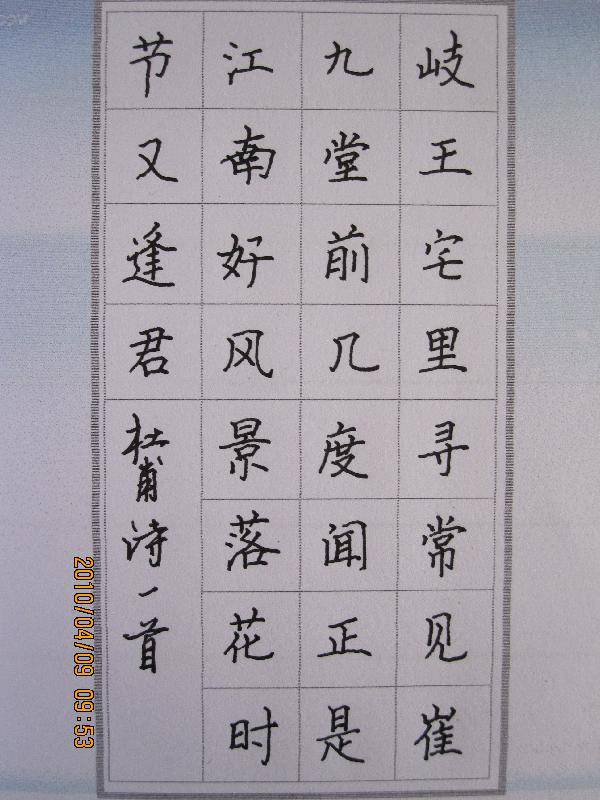 岐王宅里寻常见崔
九堂前几度闻正是
江南好风景落花时
节又逢君
杜甫诗一首
2010/04/09 09:53